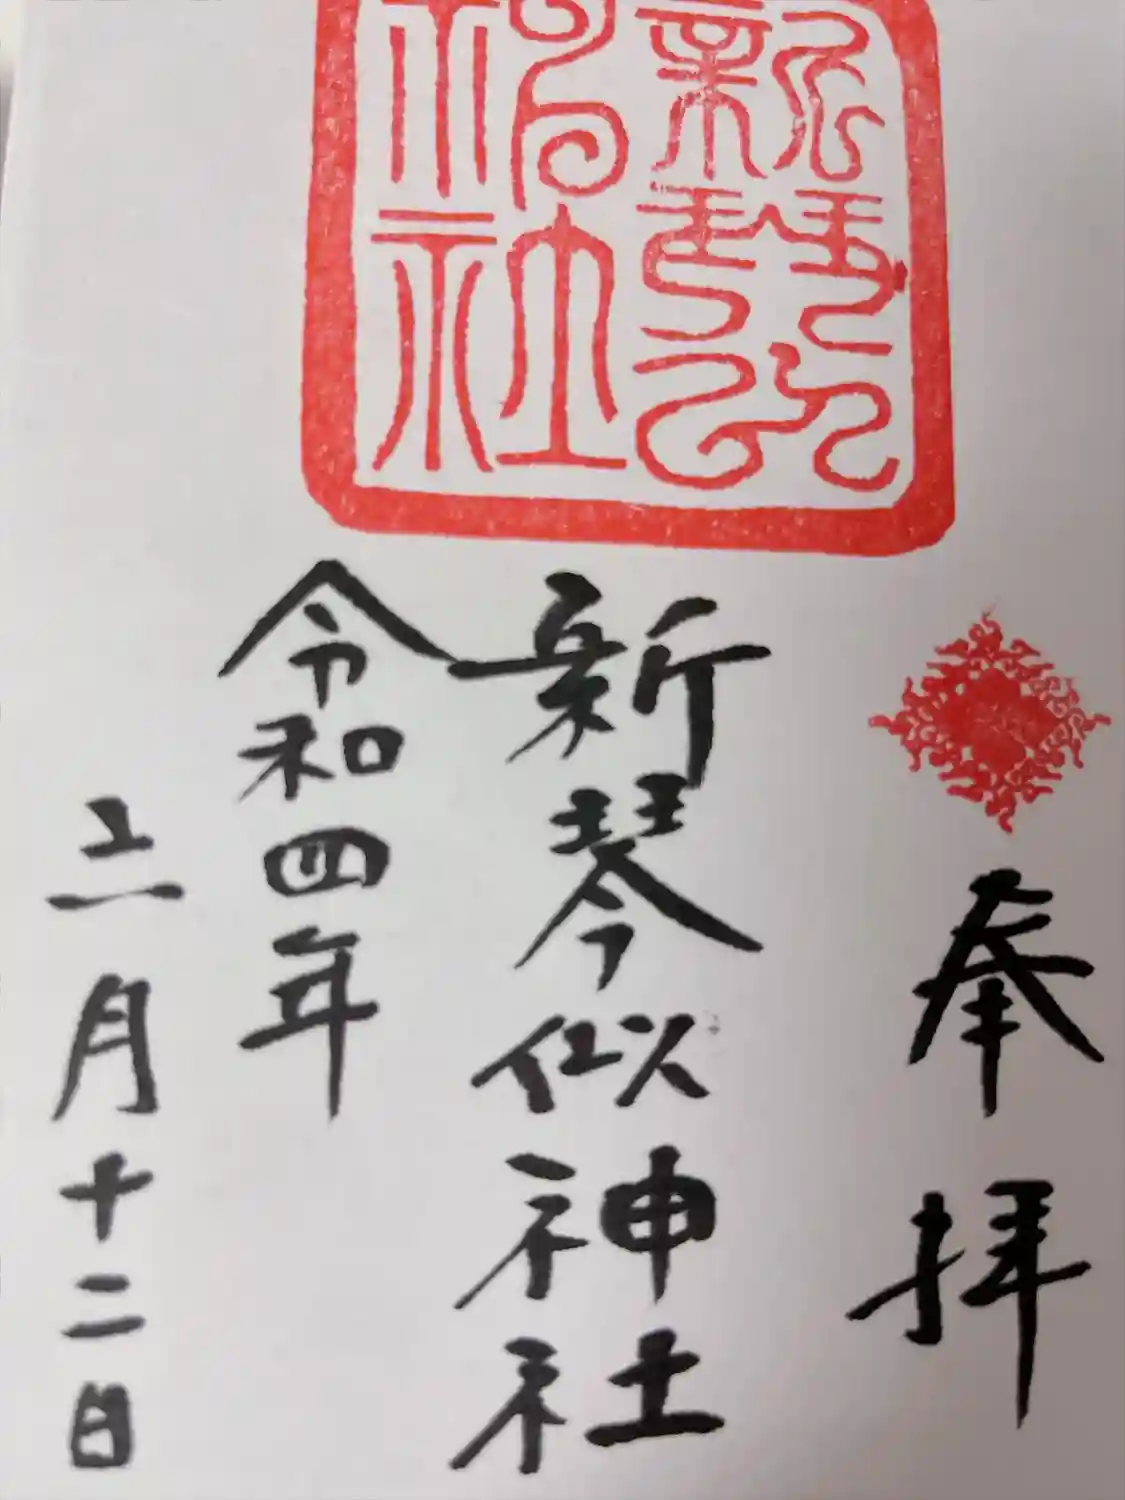 新琴似
神社
奉拝
新琴似神社
令和四年
月十二日